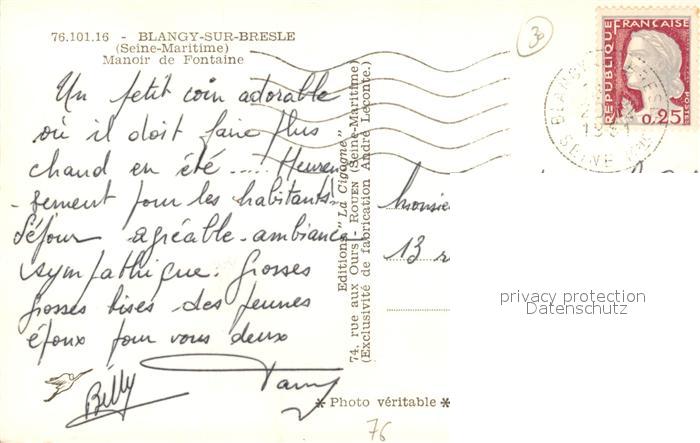 76.101.16 - BLANGY-SUR-BRESLE
(Seine-Maritime)
Manoir de Fontaine
Un petit coin adorable
où il doit faire plus
chaud en été ..... Heureu
-sement pour les habitants!
Séjour agréable - ambiance
sympathique. Grosses
grosses bises des jeunes
époux pour vous deux
Billy
Editions "La Cigogne"
74, rue aux Ours - ROUEN (Seine-Maritime)
(Exclusivité de fabrication André Leconte.)
* Photo véritable *
76
30
REPUBLIQUE FRANÇAISE
POSTES
0,25
BLANGY
SEINE
Monsie
13 r
privacy protection
Datenschutz